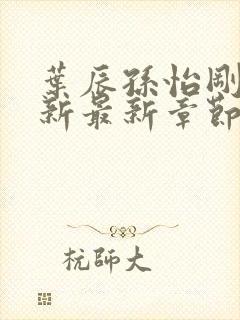 葉辰孫怡剛
新最新章節
杭師大